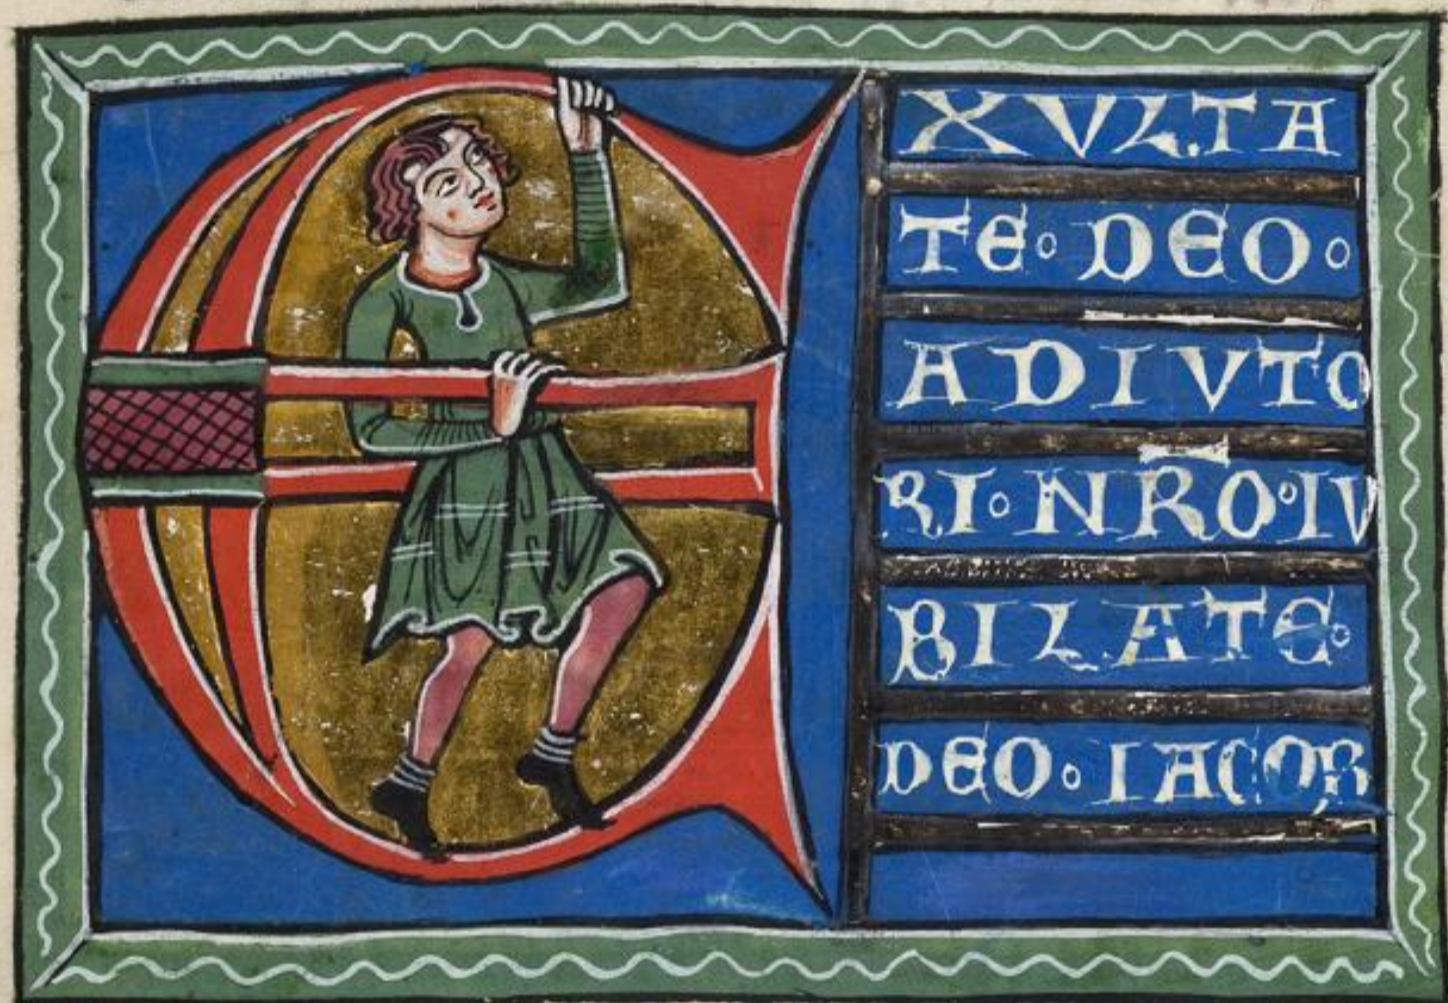 EXVLTA
TE·DEO·
ADIVTO
RI·NR̅O·IV
BILATE·
DEO·IACOB